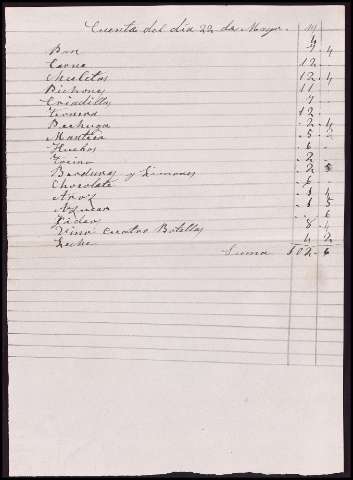 Cuenta del dia 22 de Mayo.
Pan 7 . 4
Carne 12 .
Chuletas 12 . 4
Pichones 11 .
Criadillas 7 .
Ternera 12 .
Pechuga 2 . 4
Manteca 5 . 2
Huebos 6 .
Tocino 2 .
Berduras y Limones 2 . 5
Chocolate 6 .
Arroz 1 . 4
Azucar 1 . 5
Fideo . 6
Vino Cuatro Botellas 8 . 4
Leche 4 . 2
Suma 102 . 6